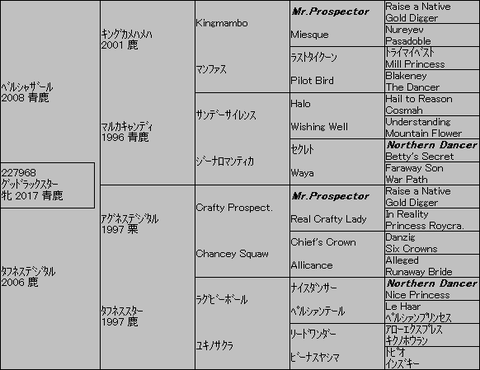 ﾍﾞﾙｼｬｻﾞｰﾙ
2008 青鹿
227968
ｸﾞｯﾄﾞﾗｯｸｽﾀｰ
牝 2017 青鹿
ﾀﾌﾈｽﾃﾞｼﾞﾀﾙ
2006 鹿
ｷﾝｸﾞｶﾒﾊﾒﾊ
2001 鹿
ﾏﾙｶｷｬﾝﾃﾞｨ
1996 青鹿
ｱｸﾞﾈｽﾃﾞｼﾞﾀﾙ
1997 栗
ﾀﾌﾈｽｽﾀｰ
1997 鹿
Kingmambo
ﾏﾝﾌｧｽ
ｻﾝﾃﾞｰｻｲﾚﾝｽ
ｼﾞｰﾅﾛﾏﾝﾃｨｶ
Crafty Prospect.
Chancey Squaw
ﾗｸﾞﾋﾞｰﾎﾞｰﾙ
ﾕｷﾉｻｸﾗ
Mr.Prospector
Miesque
ﾗｽﾄﾀｲｸｰﾝ
Pilot Bird
Halo
Wishing Well
ｾｸﾚﾄ
Waya
Mr.Prospector
Real Crafty Lady
Chief's Crown
Allicance
ﾅｲｽﾀﾞﾝｻｰ
ﾍﾟﾙｼｬﾝﾃｰﾙ
ﾘｰﾄﾞﾜﾝﾀﾞｰ
ﾋﾞｰﾅｽﾔｼﾏ
Raise a Native
Gold Digger
Nureyev
Pasadoble
ﾄﾗｲﾏｲﾍﾞｽﾄ
Mill Princess
Blakeney
The Dancer
Hail to Reason
Cosmah
Understanding
Mountain Flower
Northern Dancer
Betty's Secret
Faraway Son
War Path
Raise a Native
Gold Digger
In Reality
Princess Roycra.
Danzig
Six Crowns
Alleged
Runaway Bride
Northern Dancer
Nice Princess
Le Haar
ﾍﾟﾙｼｬﾝﾌﾟﾘﾝｾｽ
ｱﾛｰｴｸｽﾌﾟﾚｽ
ｷｸﾉﾎｳﾗﾝ
ﾄﾋﾟｵ
ｲﾝｽﾞｷｰ